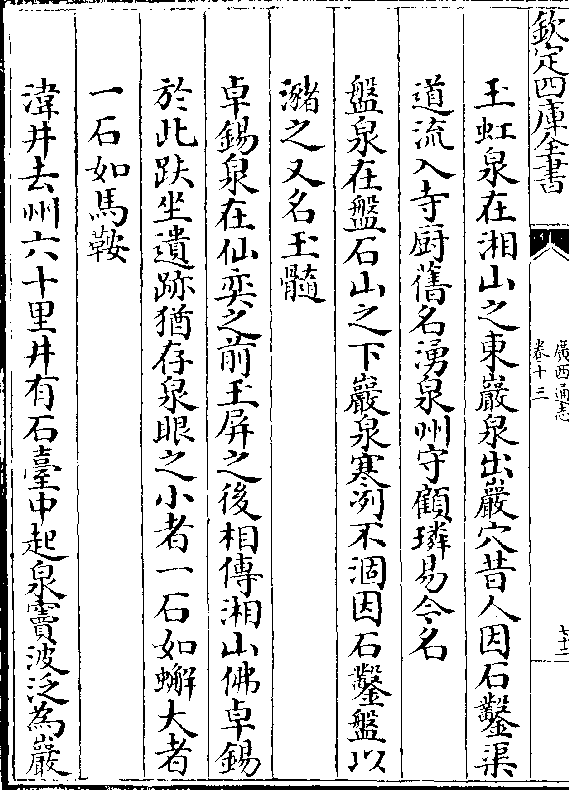 欽定四庫全書
廣西通志
卷十三
七十二
玉虹泉在湘山之東巖泉出巖穴昔人因石鑿渠
道流入寺厨舊名湧泉州守顧璘易今名
盤泉在盤石山之下巖泉寒冽不涸因石鑿盤以
瀦之又名玉髓
卓錫泉在仙奕之前玉屏之後相傳湘山佛卓錫
於此趺坐遺跡猶存泉眼之小者一石如蠏大者
一石如馬鞍
湋井去州六十里井有石臺中起泉竇波泛為巖